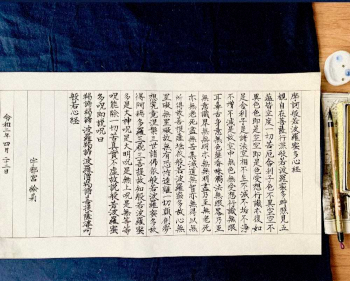 摩訶般若波羅蜜多心経
観自在菩薩行深般若波羅蜜多時照見五
蘊皆空度一切苦厄舎利子色不異空空不
異色色即是空空即是色受想行識亦復如
是舎利子是諸法空相不生不滅不垢不浄
不増不減是故空中無色無受想行識無眼
耳鼻舌身意無色声香味触法無眼界乃至
無意識界無無明亦無無明尽乃至無老死
亦無老死尽無苦集滅道無智亦無得以無
所得故菩提薩埵依般若波羅蜜多故心無
罣礙無罣礙故無有恐怖遠離一切顛倒夢
想究竟涅槃三世諸仏依般若波羅蜜多故
得阿耨多羅三藐三菩提故知般若波羅蜜
多是大神呪是大明呪是無上呪是無等等
呪能除一切苦真実不虚故説般若波羅蜜
多呪即説呪曰
羯諦羯諦 波羅羯諦 波羅僧羯諦 菩提薩婆訶
般若心経
宇都宮
令和 年 四月二十 日